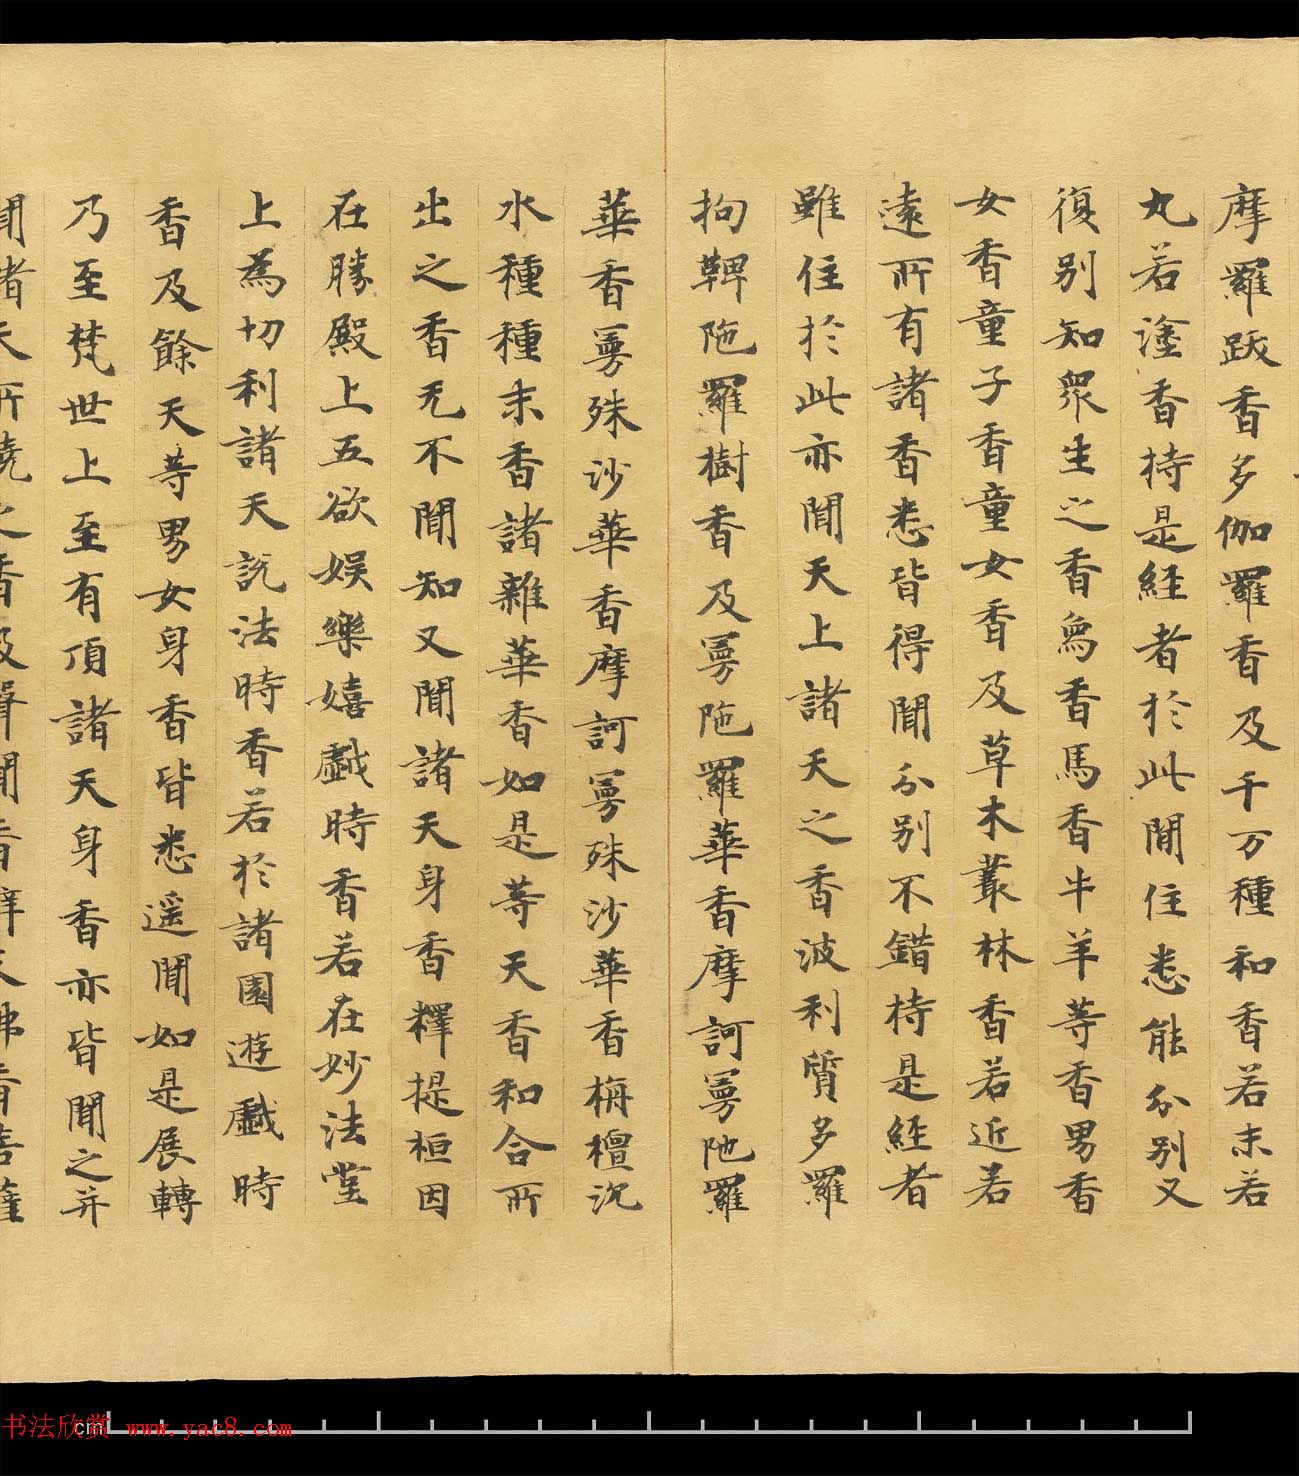 摩羅跋香多伽羅香及千万種和香若末若
丸若塗香持是経者於此間住悉能分別又
復別知衆生之香象香馬香牛羊等香男香
女香童子香童女香及草木叢林香若近若
遠所有諸香悉皆得聞分別不錯持是経者
雖住於此亦聞天上諸天之香波利質多羅
拘鞞陁羅樹香及曼陁羅華香摩訶曼陁羅
華香曼殊沙華香摩訶曼殊沙華香栴檀沉
水種種末香諸雜華香如是等天香和合所
出之香无不聞知又聞諸天身香釋提桓因
在勝殿上五欲娛樂嬉戲時香若在妙法堂
上為忉利諸天説法時香若於諸園遊戲時
香及餘天等男女身香皆悉遥聞如是展轉
乃至梵世上至有頂諸天身香亦皆聞之并
聞諸天所燒之香及聲聞香辟支佛香菩薩
书法欣赏 www.yac8.com
cm